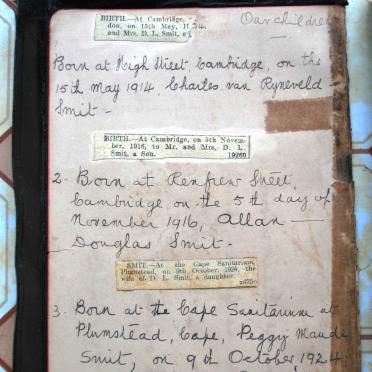 Our children
BIRTH.—At Cambridge,
don, on 15th May, 19
and Mrs. D. L. Smit, a
Born at High Street, Cambridge, on the
15th May 1914 Charles van Ryneveld
Smit -
BIRTH.—At Cambridge, on 5th Novem-
ber, 1916, to Mr. and Mrs. D. L.
Smit, a Son. 19260
2. Born at Renfrew Street,
Cambridge on the 5th day of
November 1916, Allan —
Douglas Smit -
SMIT.—At the Cape Sanitarium,
Plumstead, on 9th October, 1924, the
wife of D. L. Smit, a daughter.
3. Born at the Cape Sanitarium at
Plumstead, Cape, Peggy Maude
Smit, on 9th October 1924